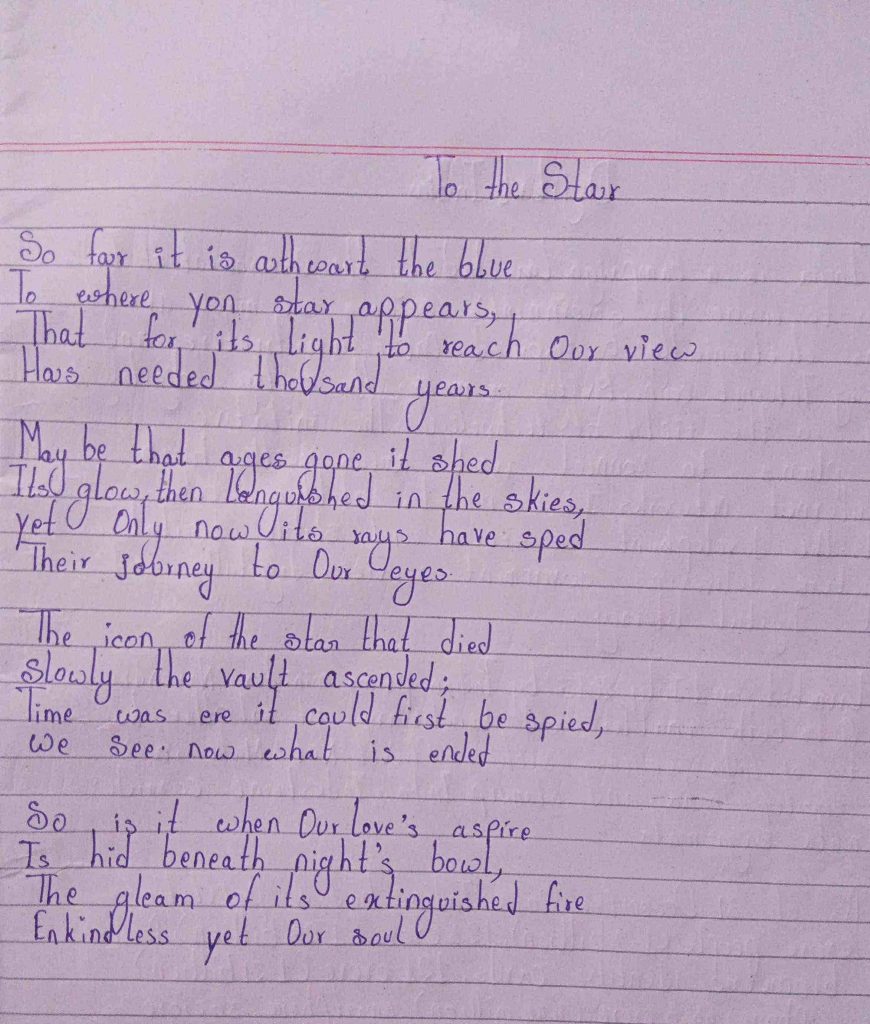 To the Star
So far it is athwart the blue
To where yon star appears,
That for its light to reach Our view
Has needed thousand years.
May be that ages gone it shed
Its glow, then languished in the skies,
yet Only now its rays have sped
Their journey to Our eyes.
The icon of the star that died
Slowly the vault ascended;
Time was ere it could first be spied,
We see. now what is ended
So is it when Our love's aspire
Is hid beneath night's bowl,
The gleam of its extinguished fire
Enkindless yet Our soul